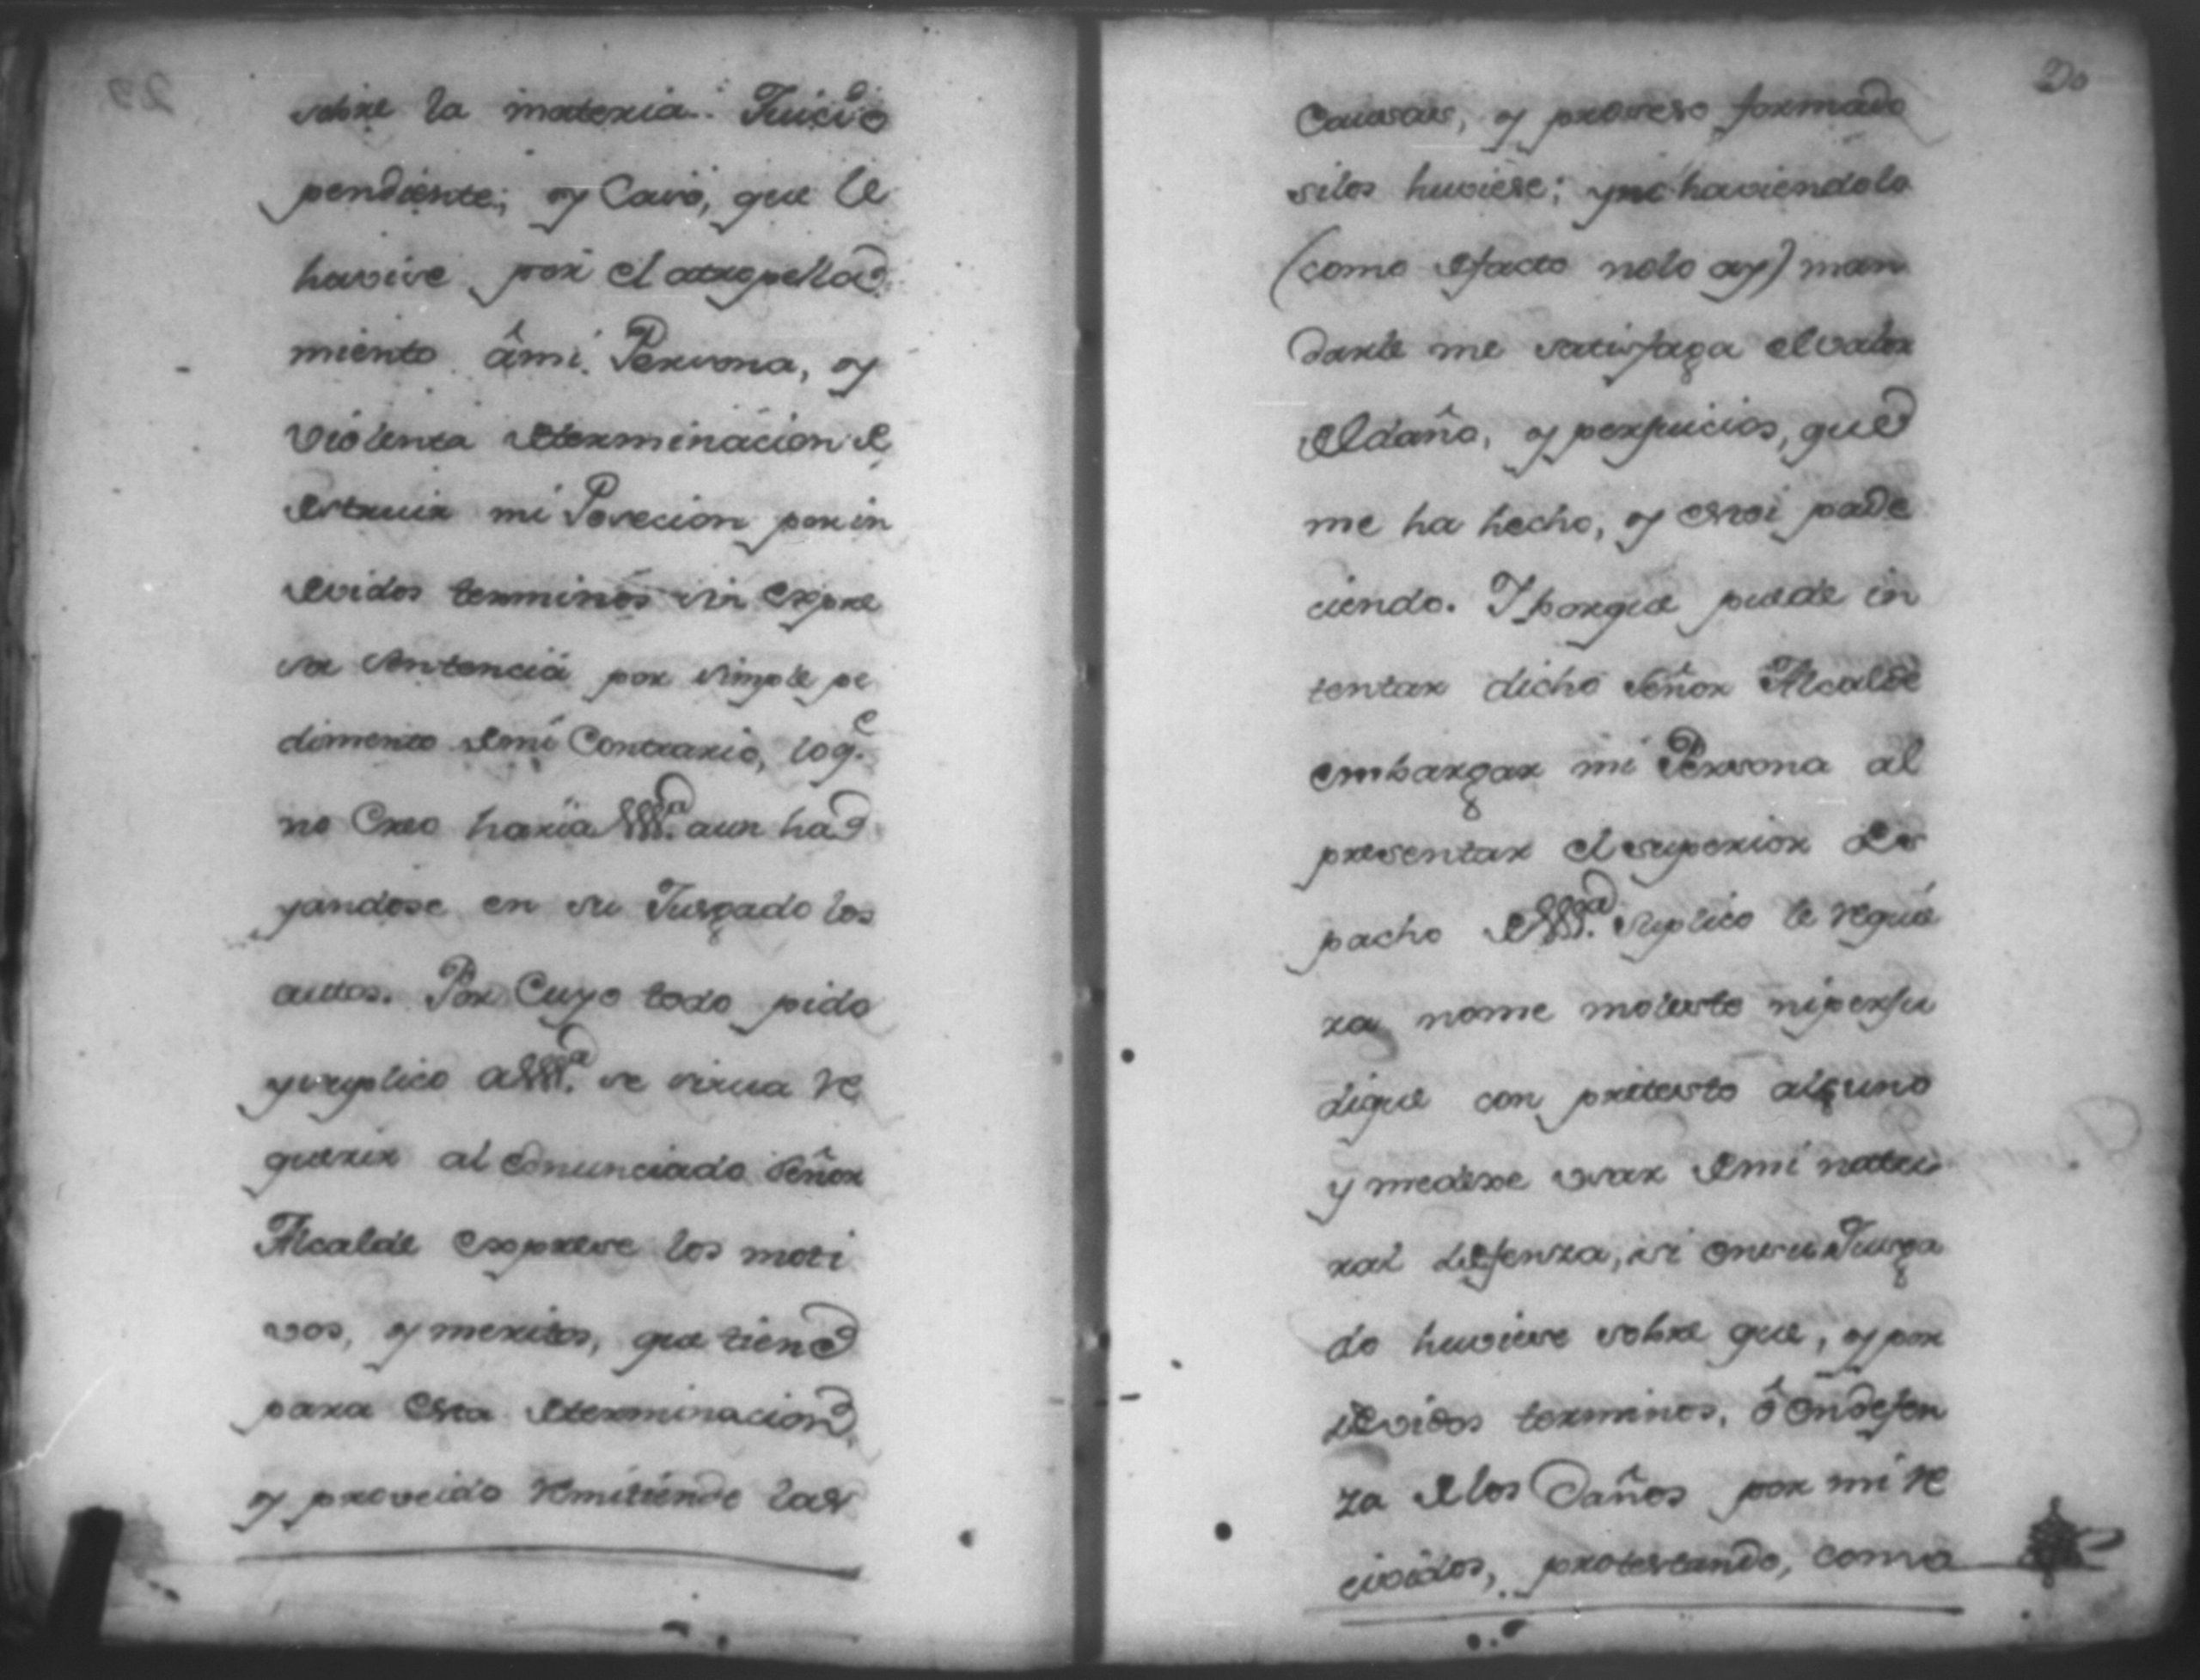 sobre la materia Juicio
pendiente; y Caso, que le
haviese por el atropella
miento âmi Persona, y
violenta determinacion de
destruir mi Posecion por in
devidos terminos sin expre
sa sentencia por simple pe
dimento demi Contrario, loq.e
no Creo haria VSS.a aun ha
yandose en su Jusgado los
autos. Por Cuyo todo pido
y suplico aVSS.a se sirva Re
querir al enunciado Señor
Alcalde exprese los moti
vos, y meritos, que tiene
para esta determinacion
y proveido Remitiendo las
20
Causas, y proceso formado
silos huviese; yno haviendolo
(como defacto nolo ay) man
darle me satisfaga elvalor
deldaño, y perjuicios, que
me ha hecho, y estoi pade
ciendo. Y porque puede in
tentar dicho Señor Alcalde
embargar mi Persona al
presentar el superior des
pacho deVSS.a suplico le Requie
ra nome moleste niperju
dique con pretesto alguno
y medexe usar demi natu
ral defensa, si ensu Jusga
do huviese sobre que, y por
devidos terminos, ô endefen
za delos Daños por mi Re
civídos, protestando, como